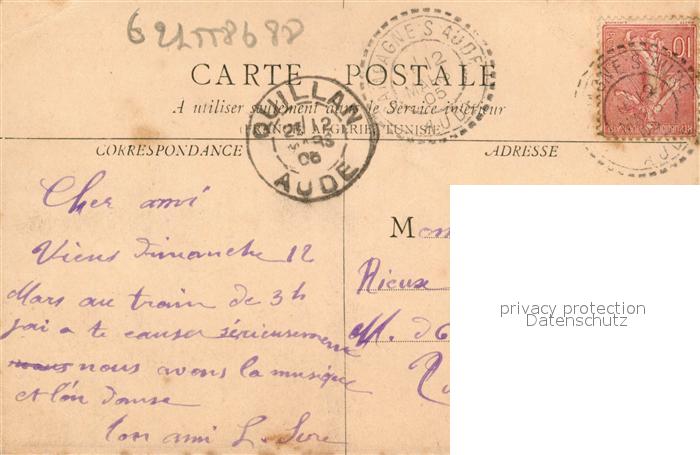 CARTE POSTALE
A utiliser seulement dans le Service intérieur
(FRANCE, ALGERIE, TUNISIE)
CORRESPONDANCE
ADRESSE
QUILLAN
12
MARS
05
AUDE
12
MARS
05
AUDE
10
Cher ami
Viens dimanche 12
Mars au train de 3h
j'ai a te causer sérieusement
nous nous avons la musique
et l'on danse
Ton ami L.
M
Rieux
M. d
privacy protection
Datenschutz